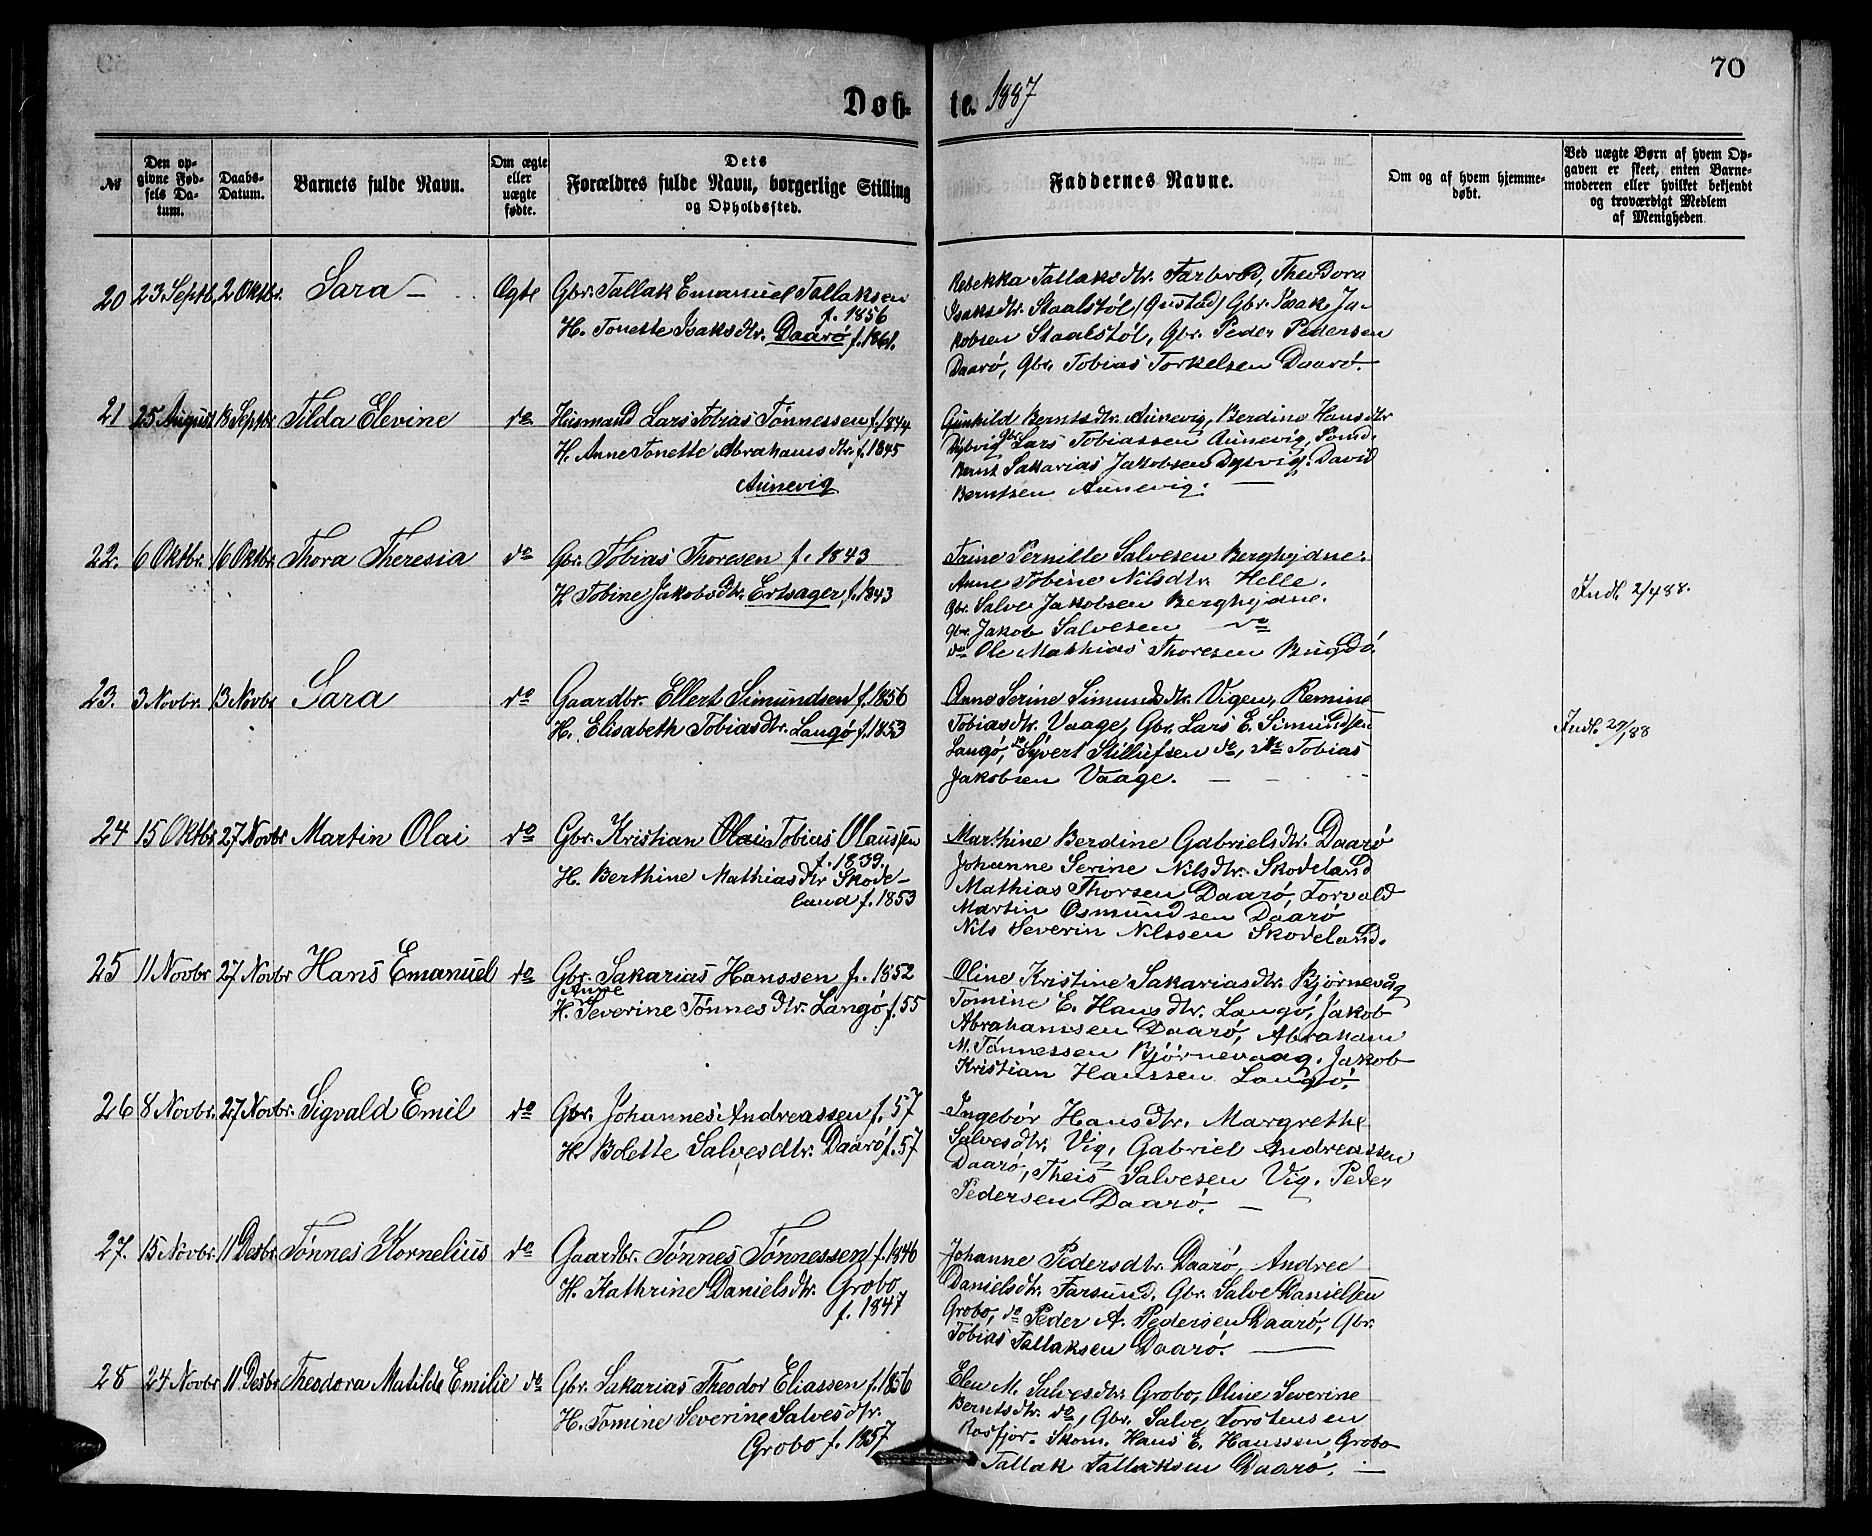 70
Døb-te. 1887
№
Den opgivne Fødsels Datum.
Daabs-Datum.
Barnets fulde Navn.
Om ægte eller uægte fødte.
Dets Forældres fulde Navn, borgerlige Stilling og Opholdssted.
Faddernes Navne.
Om og af hvem hjemmedøbt.
Ved uægte Børn af hvem Opgaven er skeet, enten Barnemoderen eller hvilket bekjendt og troværdigt Medlem af Menigheden
20 23 Septb. 2 Oktbr. Sara Ægte Gbr. Tallak Emanuel Tallaksen
f. 1856
H. Tonette Isaksdtr. Daarø f. 1861.
Rebekka Tallaksdtr. Farbrod, Theodora
Isaksdtr. Staalstøl (Onstad) Gbr. Isak Ja-
kobsen Staalstøl, Gbr. Peder Pedersen
Daarø, Gbr. Tobias Torkelsen Daarø.
21 25 August 18 Septbr. Tilda Elevine do Husmand Lars Tobias Tønnessen f. 1844
H. Anne Tonette Abrahamsdtr. f. 1845
Aunevig
Gunhild Berntsdtr. Aunevig, Berdine Hansdtr
Dybvig Gbr. Lars Tobiassen Aunevig,
Bernt Sakarias Jakobsen Dybvig. David
Berntsen Aunevig.
22. 6 Oktbr. 16 Oktbr. Thora Theresia do Gbr. Tobias Thoresen f. 1843
H. Tobine Jakobsdtr. Ertsager f. 1843
Trine Pernille Salvesen Berghejdne.
Anne Tobine Nilsdtr. Helle.
Gbr. Salve Jakobsen Berghejdne.
Gbr. Jakob Salvesen do
do Ole Mathias Thoresen Bugdø
Indl. 2/4 88.
23. 3 Novbr. 13 Novbr Sara do Gaardbr. Ellert Simundsen f. 1856
H. Elisabeth Tobiasdtr. Langø f. 1853
Anne Serine Simundsdtr. Vigen, Remine
Tobiasdtr. Vaage, Gbr. Lars E. Simundsen
Langø, do Syvert Stillufsen do, do Tobias
Jakobsen Vaage.
Indl. 29/88
24 15 Oktbr 27 Novbr Martin Olai do Gbr. Kristian Olai Tobias Olaussen
f. 1839.
H. Berthine Mathiasdtr Skode-
land f. 1853
Marthine Berdine Gabrielsdtr. Daarø
Johanne Serine Nilsdtr. Skodeland
Mathias Thorsen Daarø, Torvald
Martin Osmundsen Daarø
Nils Severin Nilssen Skodeland.
25 11 Novbr 27 Novbr Hans Emanuel do Gbr. Sakarias Hanssen f. 1852
Anne
H. Severine Tønnesdtr. Langø f. 55
Oline Kristine Sakariasdtr. Bjørnevåg
Tomine E. Hansdtr. Langø, Jakob
Abrahamsen Daarø, Abraham
M. Tønnessen Bjørnevaag. Jakob
Kristian Hanssen Langø.
26 8 Novbr. 27 Novbr. Sigvald Emil do Gbr. Johannes Andreassen f. 57
H. Bolette Salvesdtr. Daarø f. 57
Ingebor Hansdtr. Margrethe
Salvesdtr. Vig, Gabriel Andreassen
Daarø, Theis Salvesen Vig. Peder
Pedersen Daarø.
27. 15 Novbr. 11 Desbr Tønnes Kornelius do Gaardbr. Tønnes Tønnessen f. 1846
H. Kathrine Danielsdtr. Grobo
f. 1847
Johanne Pedersdtr. Daarø, Andree
Danielsdtr. Farsund, Gbr. Salve Danielsen
Grobo, do Peder A. Pedersen Daarø, Gbr.
Tobias Tallaksen Daarø.
28 24 Novbr 11 Desbr Theodora Matilde Emilie do Gbr. Sakarias Theodor Eliassen f. 1856
H. Tomine Severine Salvesdtr.
Grobo f. 1857
Elen M. Salvesdtr. Grobo, Oline Severine
Berntsdtr. do, Gbr. Salve Torstensen
Rosfjor. Skom. Hans E. Hanssen Grobo
Tallak Tallaksen Daarø.